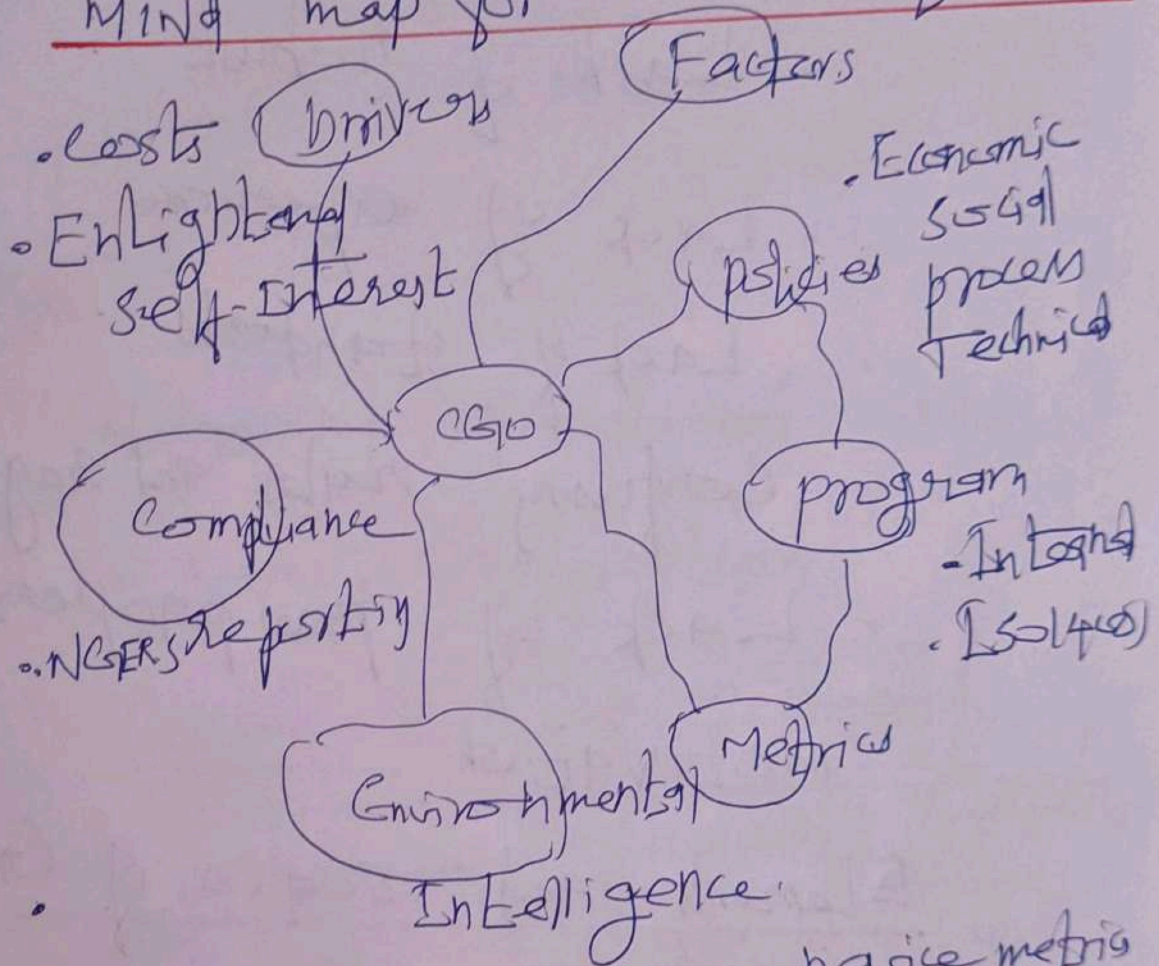 Mind map for
Factors
Drivers
. Costs
. Enlightened
Self-Interest
. Economic
Social
process
Technical
policies
CGO
program
- Internal
. ISO14000
Compliance
. NGERS reporting
Metrics
Environmental
Intelligence
metric